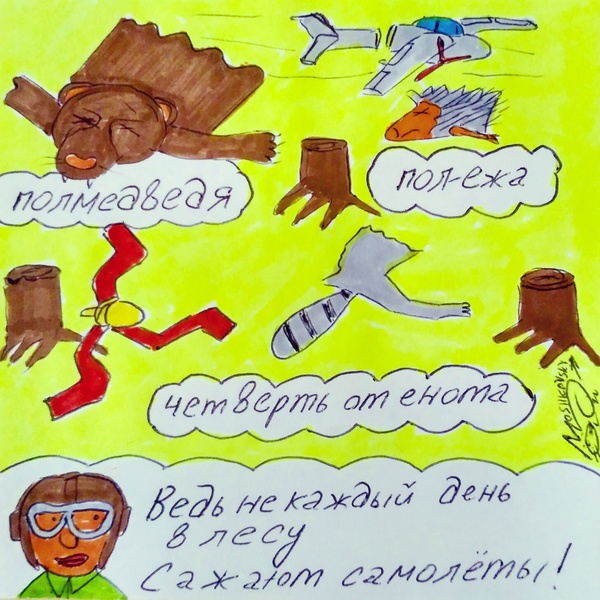 полмедведя
пол-ежа
четверть от енота
MOSHKOVSKY
Ведь не каждый день
в лесу
Сажают самолёты!